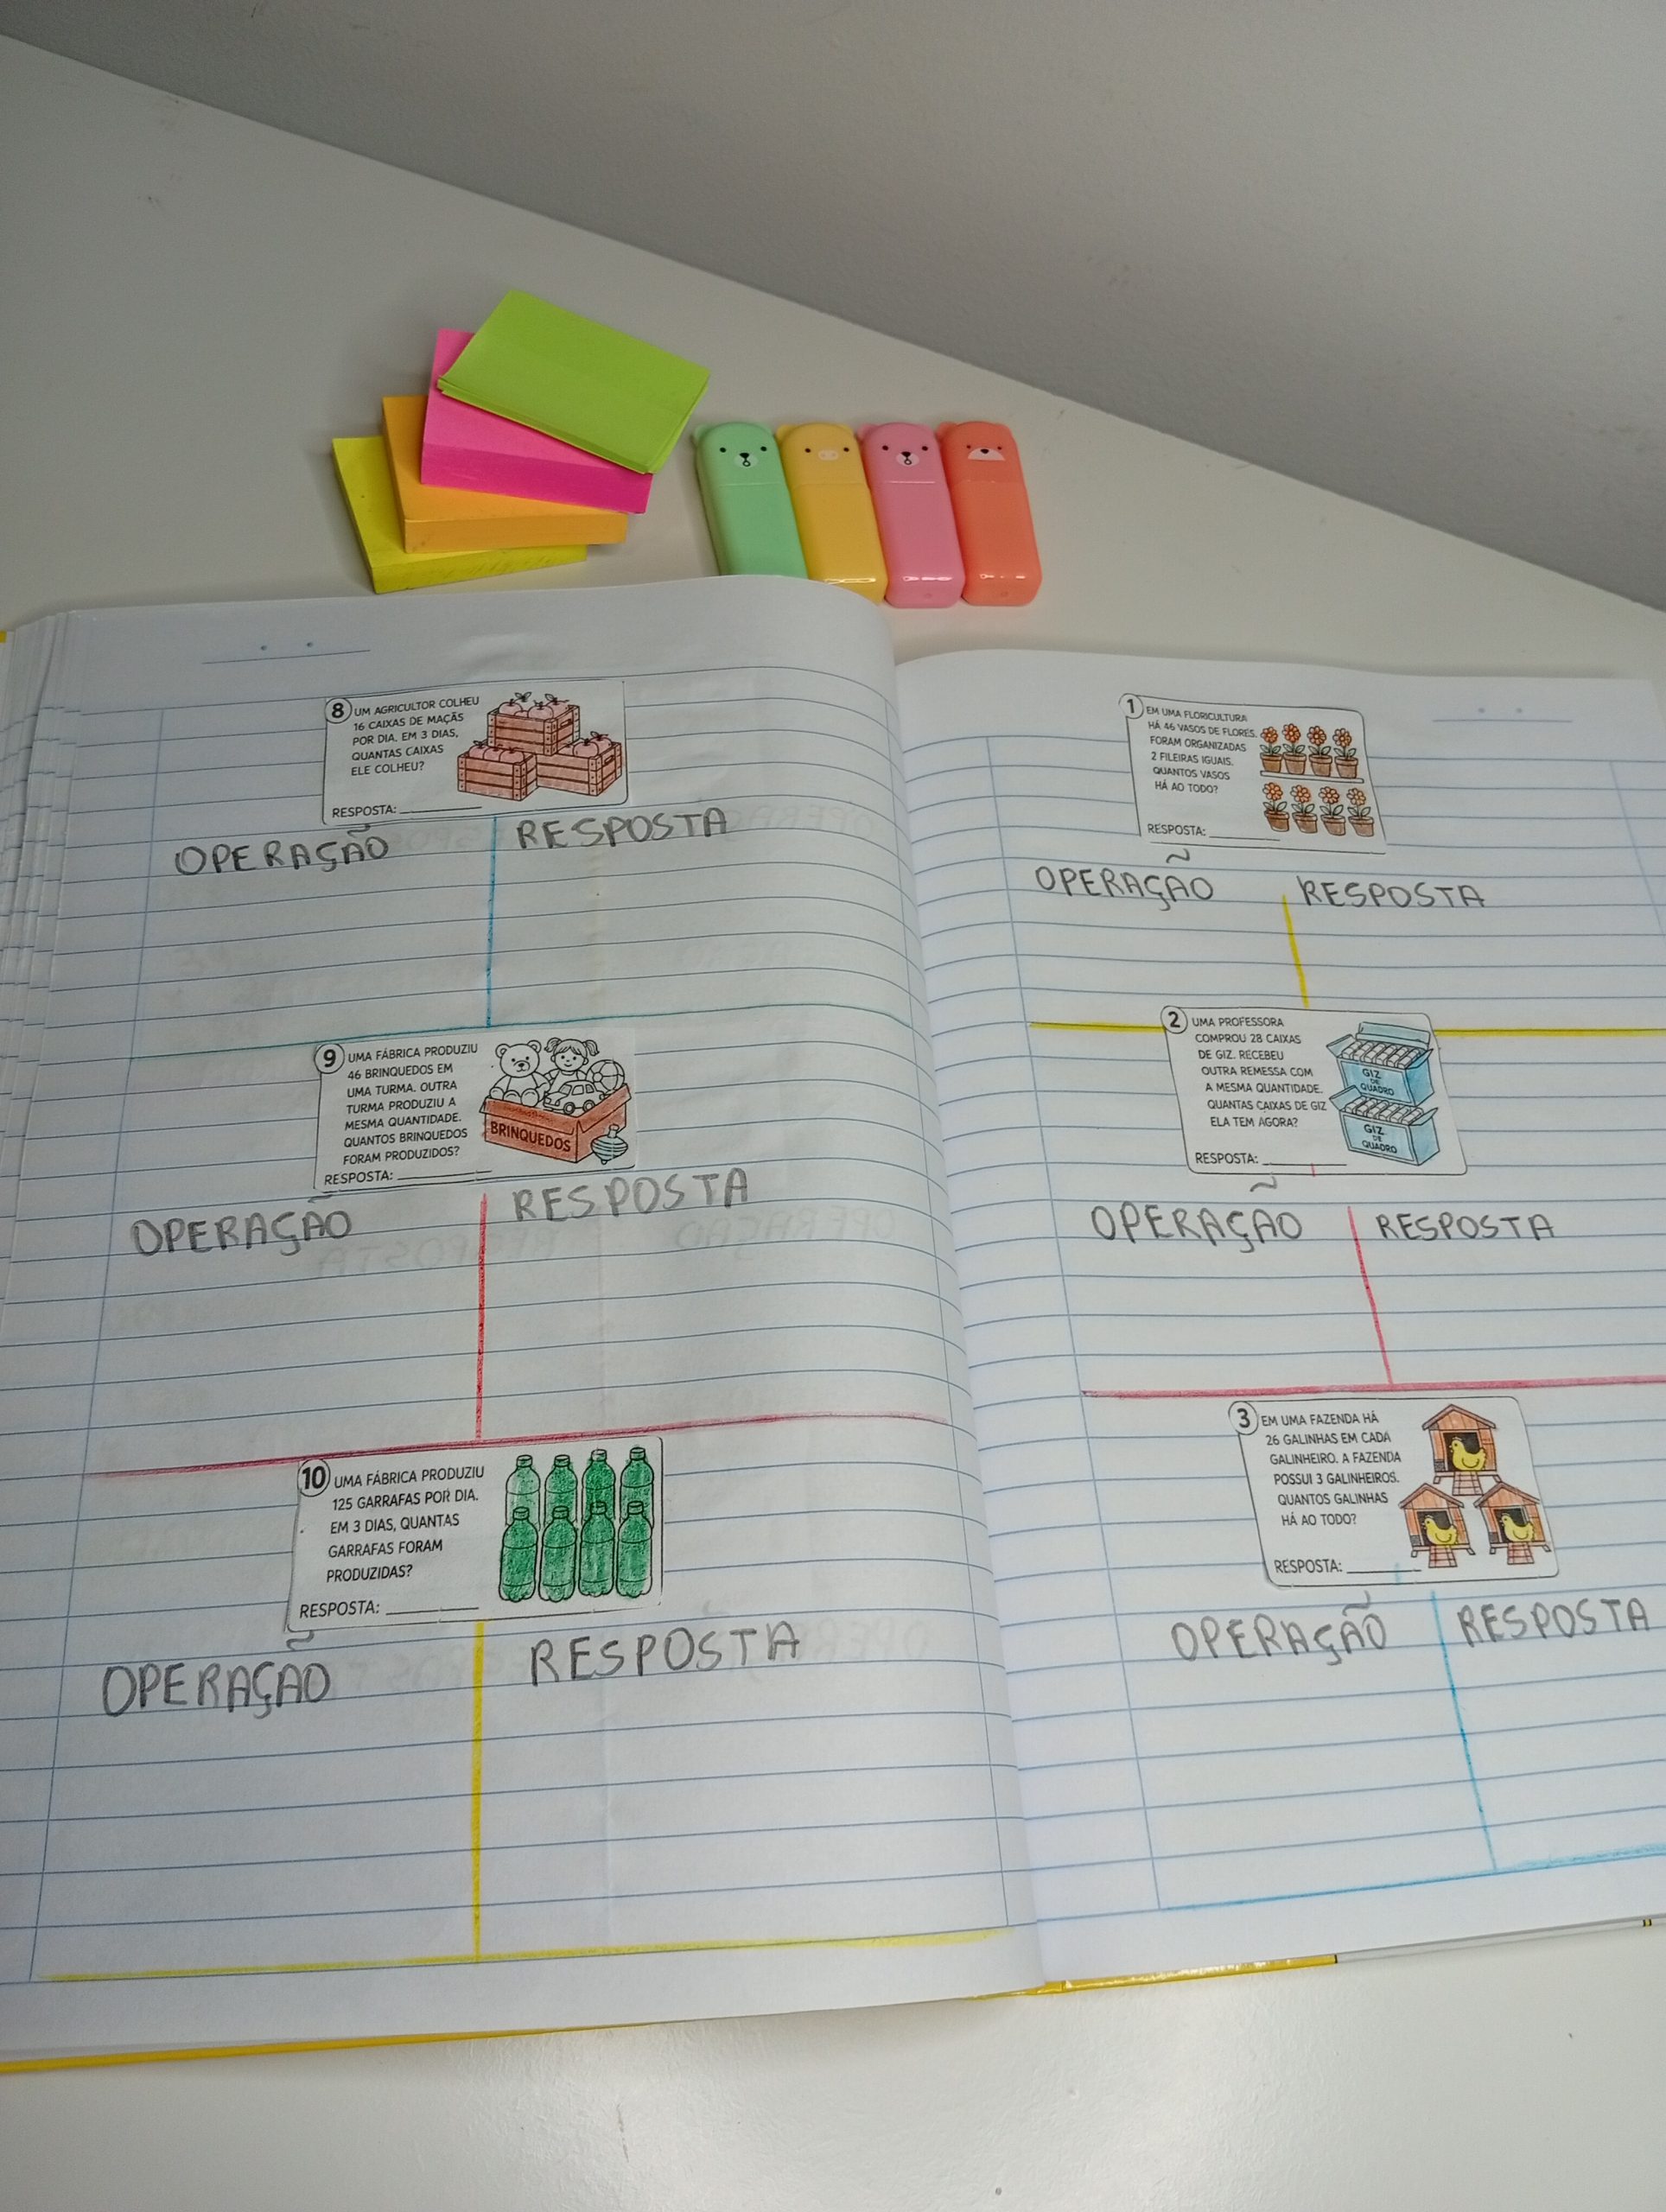 8 UM AGRICULTOR COLHEU
16 CAIXAS DE MAÇÃS
POR DIA. EM 3 DIAS,
QUANTAS CAIXAS
ELE COLHEU?
RESPOSTA:
OPERAÇÃO RESPOSTA
9 UMA FÁBRICA PRODUZIU
46 BRINQUEDOS EM
UMA TURMA. OUTRA
TURMA PRODUZIU A
MESMA QUANTIDADE.
QUANTOS BRINQUEDOS
FORAM PRODUZIDOS?
RESPOSTA:
BRINQUEDOS
OPERAÇÃO RESPOSTA
10 UMA FÁBRICA PRODUZIU
125 GARRAFAS POR DIA.
EM 3 DIAS, QUANTAS
GARRAFAS FORAM
PRODUZIDAS?
RESPOSTA:
OPERAÇÃO RESPOSTA
1 EM UMA FLORICULTURA
HÁ 46 VASOS DE FLORES.
FORAM ORGANIZADAS
2 FILEIRAS IGUAIS.
QUANTOS VASOS
HÁ AO TODO?
RESPOSTA:
OPERAÇÃO RESPOSTA
2 UMA PROFESSORA
COMPROU 28 CAIXAS
DE GIZ. RECEBEU
OUTRA REMESSA COM
A MESMA QUANTIDADE.
QUANTAS CAIXAS DE GIZ
ELA TEM AGORA?
RESPOSTA:
GIZ
DE
QUADRO
GIZ
DE
QUADRO
OPERAÇÃO RESPOSTA
3 EM UMA FAZENDA HÁ
26 GALINHAS EM CADA
GALINHEIRO. A FAZENDA
POSSUI 3 GALINHEIROS.
QUANTOS GALINHAS
HÁ AO TODO?
RESPOSTA:
OPERAÇÃO RESPOSTA